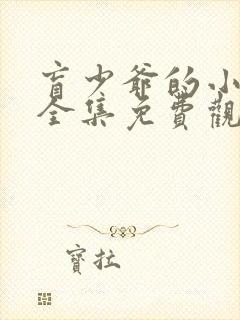 盲少爺的小
全集免費觀
寶拉